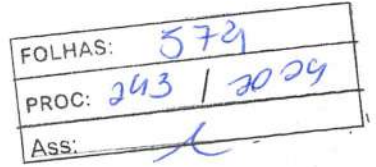 FOLHAS: 574
PROC: 243 / 2024
Ass: